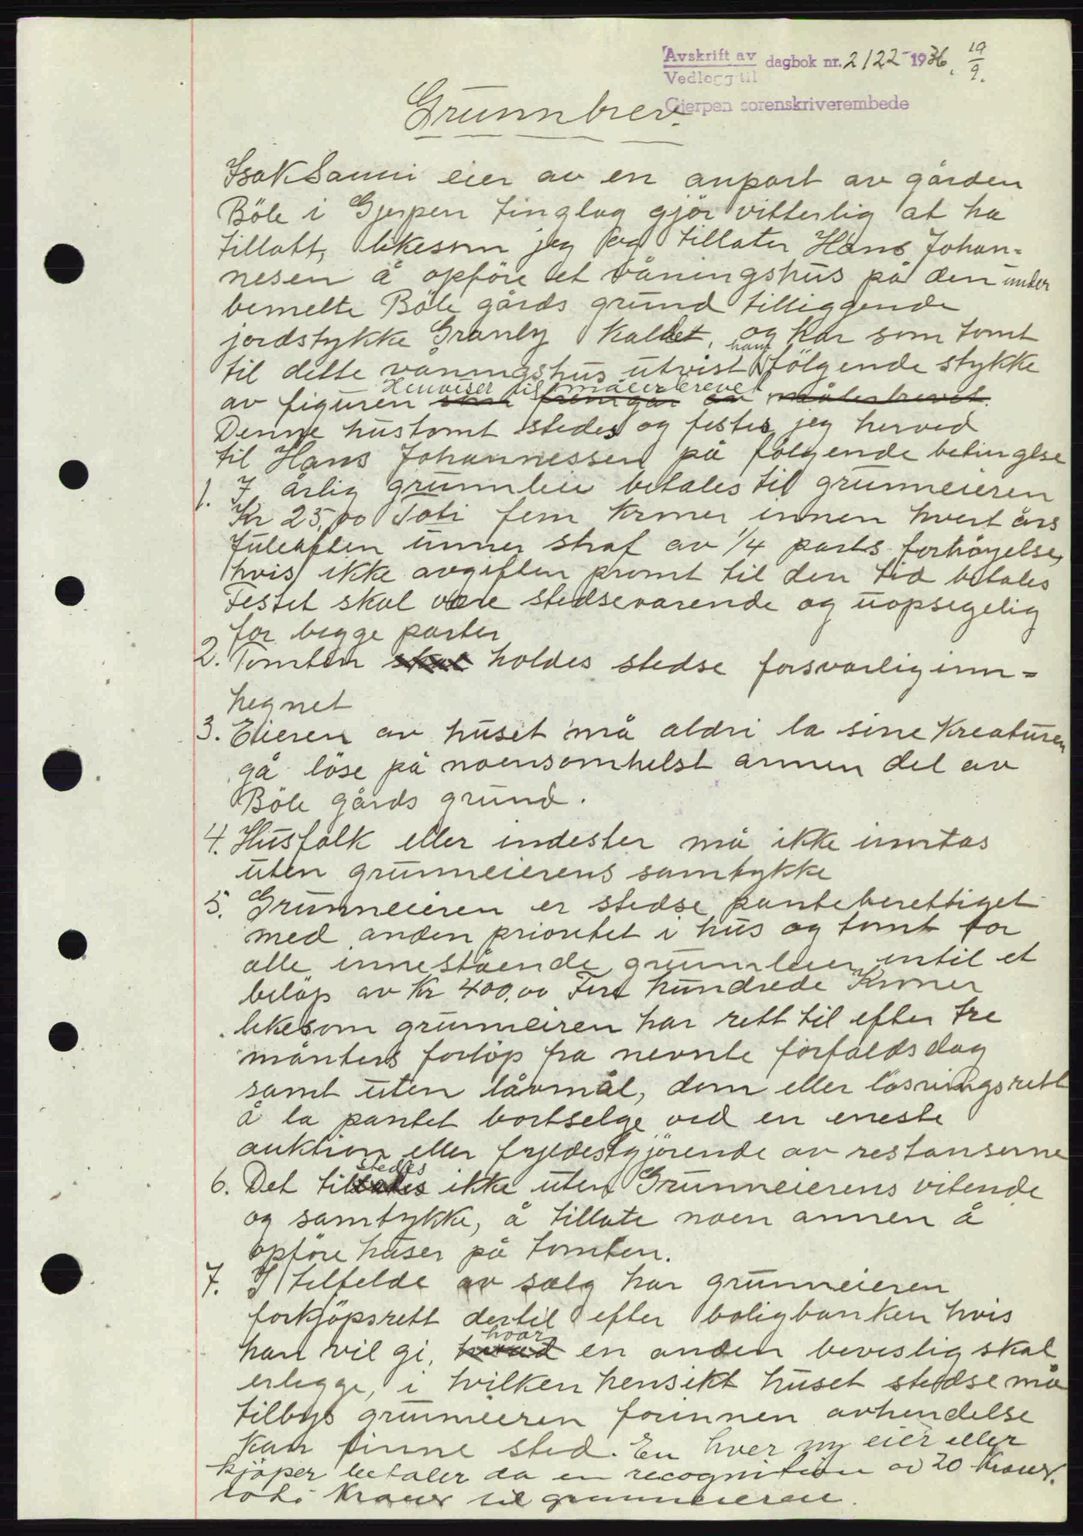 Avskrift av dagbok nr. 2122-1936. 19/9.
Vedlegg til
Gjerpen sorenskriverembede
Grunnbrev
Isak Sanni eier av en anpart av gården
Böle i Gjerpen tinglag gjör vitterlig at ha
tillatt, likesom jeg og tillater Hans Johan-
nesen å opföre et våningshus på den under
bemelte Böle gårds grund tilliggende
jordstykke Granly kallet, og har som tomt
til dette våningshus utvist ham fölgende stykke
av figuren Henviser til målerbrevet
Denne hustomt stedes og festes jeg herved
til Hans Johannessen på fölgende betinglse
1. I årlig grunnleie betales til grunneieren
Kr 25,00 fem kroner innen hvert års
Juleaften unner straf av 1/4 parts forhöyelse,
hvis ikke avgiften promt til den tid betales
Festet skal være stedsevarende og uopsegelig
for begge parter
2. Tomten holdes stedse forsvarlig inn-
hegnet
3. Eieren av huset må aldri la sine Kreaturer
gå löse på noensomhelst annen del av
Böle gårds grund.
4. Husfolk eller indester må ikke inntas
uten grunneierens samtykke
5. Grunneieren er stedse panteberettiget
med anden prioritet i hus og tomt for
alle innestående grunnleier intil et
belöp av Kr 400,00 Fire hundrede Kroner
likesom grunneiren har rett til efter tre
månters forlöp fra nevnte forfaldsdag
samt uten låvmål, dom eller lösningsrett
å la pantet bortselge ved en eneste
auktion eller fyldestgjörende av restanserne
6. Det tilstedes ikke uten Grunneierens vitende
og samtykke, å tillate noen annen å
opföre huser på tomten.
7. I tilfelde av salg har grunneieren
forkjöpsrett dertil efter boligbanken hvis
han vil gi, hvar en anden beveslig skal
erlegge, i hvilken hensikt huset stedse må
tilbys grunneieren forinnen avhendelse
kan finne sted. En hver ny eier eller
kjöper betaler da en recognition av 20 Kroner.
Kroner til grunneieren.